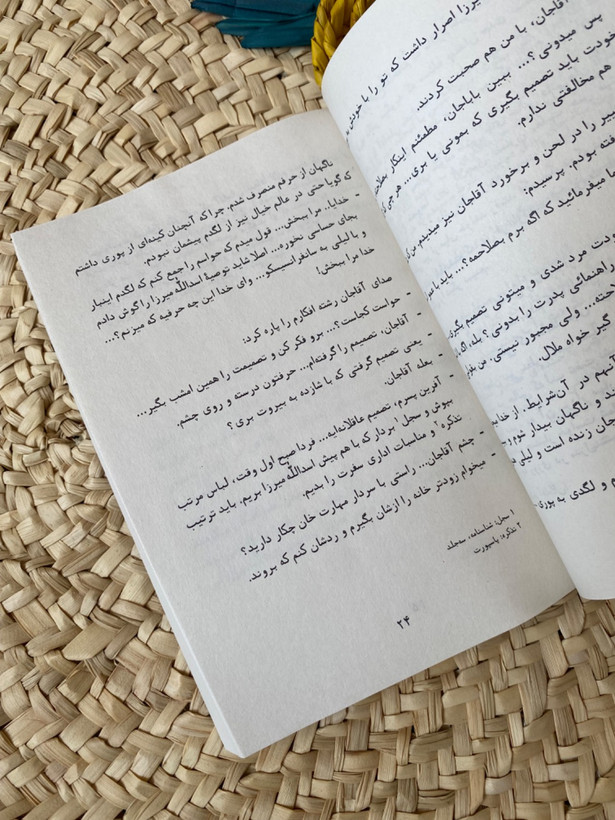 میرزا اصرار داشت که تو را با خودش
آقاجان، با من هم صحبت کردند.
پس میدونی؟... ببین باباجان، مطمئنم اینکار
خودت باید تصمیم بگیری که بمونی یا بری... هر چی
هم مخالفتی ندارم.
را در لحن و برخورد آقاجان نیز میدیدم.
بودم. پرسیدم:
میفرمائید که اگه برم بصلاحمه؟... باید با
مرد شدی و میتونی تصمیم بگیری
راهنمائی پدرت را بدونی؟ بله،
ولی مجبور نیستی. من
گیر خواه ملال.
آنهم در آن‌شرایط. از
و ناگهان بیدار شوم و
زنده است و لیلی
و لگدی به پوری
ناگهان از حرفم منصرف شدم. چرا که آنچنان کینه‌ای از پوری داشتم
که گویا حتی در عالم خیال نیز از لگدم پیشان نبودم.
- خدایا.. مرا ببخش... قول میدم که حواسم را جمع کنم که لگدم اینبار
بجای حساسی نخوره... اصلا شاید توصیهٔ اسدالله میرزا را گوش دادم
و با لیلی به سانفرانسیسکو... وای خدا این چه حرفیه که میزنم؟...
خدا مرا ببخش!
صدای آقاجان رشته افکارم را پاره کرد:
- حواست کجاست؟... برو فکر کن و تصمیمت را همین امشب بگیر...
- آقاجان، تصمیمم را گرفته‌ام... حرفتون درسته و روی چشم.
- یعنی تصمیم گرفتی که با شازده به بیروت بری؟
- بعله آقاجان.
- آفرین پسرم، تصمیم عاقلانه‌ایه... فردا صبح اول وقت، لباس مرتب
بپوش و سجل ۱ بردار که با هم پیش اسدالله میرزا بریم. باید ترتیب
تذکره ۲ و مناسبات اداری سفرت را بدیم.
- چشم آقاجان... راستی با سردار مهارت خان چکار دارید؟
- میخوام زودتر خانه را ازشان بگیرم و ردشان کنم که بروند.
۱ سجل: شناسنامه، سه‌جلد
۲ تذکره: پاسپورت
۲۴